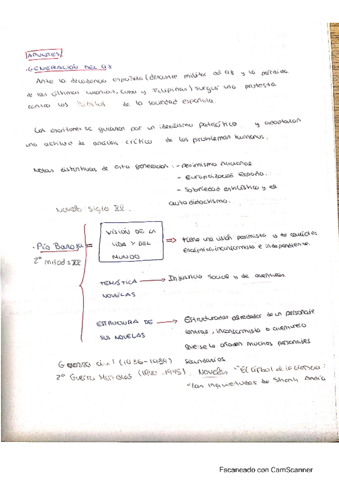 APUNTES
· GENERACIÓN DEL 98
Ante la decadencia española (desastre militar del 98 y la pérdida
de las últimas colonias, Cuba y Filipinas) surgió una protesta
contra los de la sociedad española.
Los escritores se guiaron por un idealismo patriótico y adoptaron
una actitud de análisis crítico de los problemas humanos.
Notas distintivas de esta generación: - Pesimismo nacional
- Europeización España
- Sobriedad estilística y el
autodidactismo.
Novela Siglo XX.
· Pío Baroja =
2ª mitad XX
VISIÓN DE LA
VIDA Y DEL
MUNDO
⇒ tiene una visión pesimista y de carácter
inconformista e independiente.
TEMÁTICA
NOVELAS
⇒ Injusticia social y de aventuras
ESTRUCTURA DE
SUS NOVELAS
⇒ Estructuradas alrededor de un personaje
central, inconformista o aventurero
que se le añaden muchos personajes
secundarios
Guerra civil (1936-1939)
2ª Guerra Mundial Novelas "El árbol de la ciencia"
"Las inquietudes de Shanti Andía
Escaneado con CamScanner